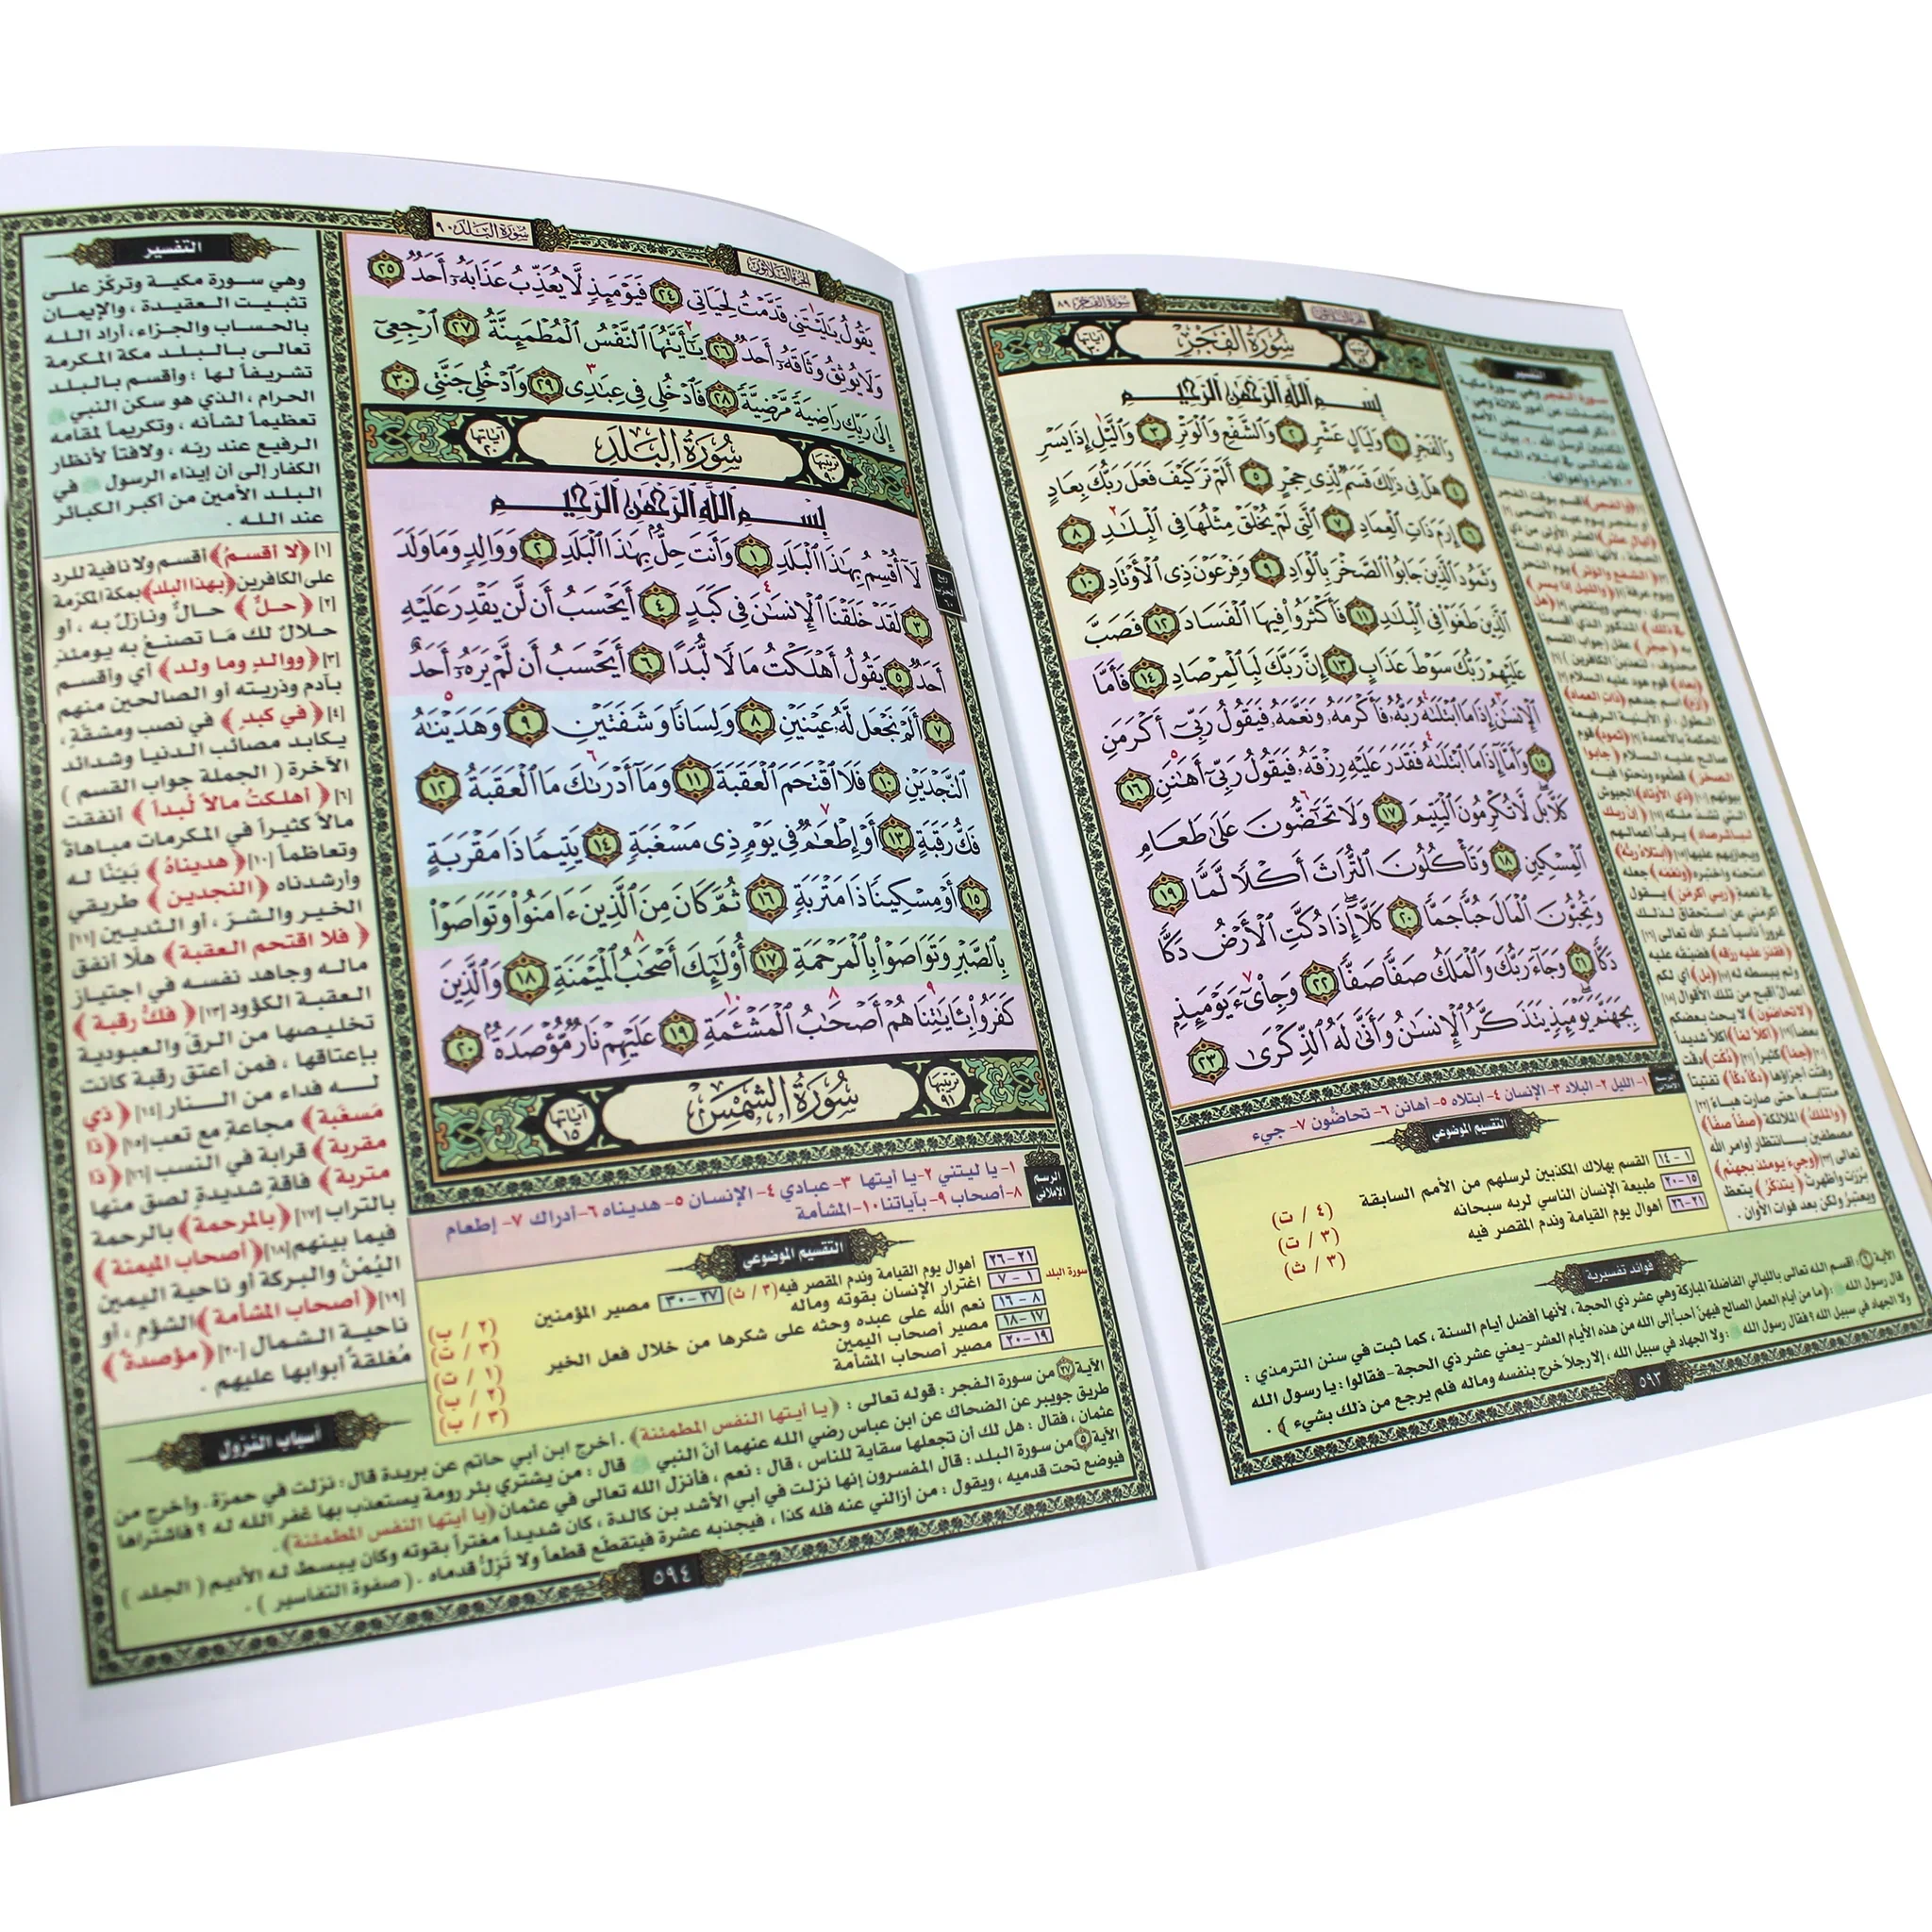 سورة الفجر ٨٩
الجزء الثلاثون
ترتيبها ٨٩
سُورَةُ الفَجْرِ
آياتها ٣٠
بِسْمِ اللَّهِ الرَّحْمَٰنِ الرَّحِيمِ
وَٱلْفَجْرِ ١ وَلَيَالٍ عَشْرٍ ٢ وَٱلشَّفْعِ وَٱلْوَتْرِ ٣ وَٱلَّيْلِ إِذَا يَسْرِ
٤ هَلْ فِى ذَٰلِكَ قَسَمٌ لِّذِى حِجْرٍ ٥ أَلَمْ تَرَ كَيْفَ فَعَلَ رَبُّكَ بِعَادٍ
٦ إِرَمَ ذَاتِ ٱلْعِمَادِ ٧ ٱلَّتِى لَمْ يُخْلَقْ مِثْلُهَا فِى ٱلْبِلَٰدِ ٨
وَثَمُودَ ٱلَّذِينَ جَابُوا۟ ٱلصَّخْرَ بِٱلْوَادِ ٩ وَفِرْعَوْنَ ذِى ٱلْأَوْتَادِ ١٠
ٱلَّذِينَ طَغَوْا۟ فِى ٱلْبِلَٰدِ ١١ فَأَكْثَرُوا۟ فِيهَا ٱلْفَسَادَ ١٢ فَصَبَّ
عَلَيْهِمْ رَبُّكَ سَوْطَ عَذَابٍ ١٣ إِنَّ رَبَّكَ لَبِٱلْمِرْصَادِ ١٤ فَأَمَّا
ٱلْإِنسَٰنُ إِذَا مَا ٱبْتَلَىٰهُ رَبُّهُۥ فَأَكْرَمَهُۥ وَنَعَّمَهُۥ فَيَقُولُ رَبِّىٓ أَكْرَمَنِ
١٥ وَأَمَّآ إِذَا مَا ٱبْتَلَىٰهُ فَقَدَرَ عَلَيْهِ رِزْقَهُۥ فَيَقُولُ رَبِّىٓ أَهَٰنَنِ ١٦
كَلَّا بَل لَّا تُكْرِمُونَ ٱلْيَتِيمَ ١٧ وَلَا تَحَٰٓضُّونَ عَلَىٰ طَعَامِ
ٱلْمِسْكِينِ ١٨ وَتَأْكُلُونَ ٱلتُّرَاثَ أَكْلًا لَّمًّا ١٩
وَتُحِبُّونَ ٱلْمَالَ حُبًّا جَمًّا ٢٠ كَلَّآ إِذَا دُكَّتِ ٱلْأَرْضُ دَكًّا
دَكًّا ٢١ وَجَآءَ رَبُّكَ وَٱلْمَلَكُ صَفًّا صَفًّا ٢٢ وَجِا۟ىٓءَ يَوْمَئِذٍۭ
بِجَهَنَّمَ يَوْمَئِذٍ يَتَذَكَّرُ ٱلْإِنسَٰنُ وَأَنَّىٰ لَهُ ٱلذِّكْرَىٰ ٢٣
الرسم الإملائي
١- الليل ٢- البلاد ٣- الإنسان ٤- ابتلاه ٥- أهانن ٦- تحاضون ٧- جيء
التقسيم الموضوعي
١ - ١٤ القسم بهلاك المكذبين لرسلهم من الأمم السابقة (٤ / ت)
١٥-٢٠ طبيعة الإنسان الناسي لربه سبحانه (٣ / ت)
٢١-٢٦ أهوال يوم القيامة وندم المقصر فيه (٣ / ث)
فوائد تفسيرية
الآية ٢ أقسم الله تعالى بالليالي الفاضلة المباركة وهي عشر ذي الحجة ، لأنها أفضل أيام السنة ، كما ثبت في سنن الترمذي :
قال رسول الله ﷺ : ( ما من أيام العمل الصالح فيهن أحب إلى الله من هذه الأيام العشر - يعني عشر ذي الحجة - فقالوا : يا رسول الله
ولا الجهاد في سبيل الله ؟ فقال رسول الله ﷺ : ولا الجهاد في سبيل الله ، إلا رجلاً خرج بنفسه وماله فلم يرجع من ذلك بشيء ) .
٥٩٣
التفسير
سورة البلد ٩٠
الجزء الثلاثون
يَقُولُ يَٰلَيْتَنِى قَدَّمْتُ لِحَيَاتِى ٢٤ فَيَوْمَئِذٍ لَّا يُعَذِّبُ عَذَابَهُۥٓ أَحَدٌ ٢٥
وَلَا يُوثِقُ وَثَاقَهُۥٓ أَحَدٌ ٢٦ يَٰٓأَيَّتُهَا ٱلنَّفْسُ ٱلْمُطْمَئِنَّةُ ٢٧ ٱرْجِعِىٓ
إِلَىٰ رَبِّكِ رَاضِيَةً مَّرْضِيَّةً ٢٨ فَٱدْخُلِى فِى عِبَٰدِى ٢٩ وَٱدْخُلِى جَنَّتِى ٣٠
ترتيبها ٩٠
سُورَةُ البَلَدِ
آياتها ٢٠
بِسْمِ اللَّهِ الرَّحْمَٰنِ الرَّحِيمِ
لَآ أُقْسِمُ بِهَٰذَا ٱلْبَلَدِ ١ وَأَنتَ حِلٌّۢ بِهَٰذَا ٱلْبَلَدِ ٢ وَوَالِدٍ وَمَا وَلَدَ
٣ لَقَدْ خَلَقْنَا ٱلْإِنسَٰنَ فِى كَبَدٍ ٤ أَيَحْسَبُ أَن لَّن يَقْدِرَ عَلَيْهِ
أَحَدٌ ٥ يَقُولُ أَهْلَكْتُ مَالًا لُّبَدًا ٦ أَيَحْسَبُ أَن لَّمْ يَرَهُۥٓ أَحَدٌ
٧ أَلَمْ نَجْعَل لَّهُۥ عَيْنَيْنِ ٨ وَلِسَانًا وَشَفَتَيْنِ ٩ وَهَدَيْنَٰهُ
ٱلنَّجْدَيْنِ ١٠ فَلَا ٱقْتَحَمَ ٱلْعَقَبَةَ ١١ وَمَآ أَدْرَىٰكَ مَا ٱلْعَقَبَةُ ١٢
فَكُّ رَقَبَةٍ ١٣ أَوْ إِطْعَٰمٌ فِى يَوْمٍ ذِى مَسْغَبَةٍ ١٤ يَتِيمًا ذَا مَقْرَبَةٍ
١٥ أَوْ مِسْكِينًا ذَا مَتْرَبَةٍ ١٦ ثُمَّ كَانَ مِنَ ٱلَّذِينَ ءَامَنُوا۟ وَتَوَاصَوْا۟
بِٱلصَّبْرِ وَتَوَاصَوْا۟ بِٱلْمَرْحَمَةِ ١٧ أُو۟لَٰٓئِكَ أَصْحَٰبُ ٱلْمَيْمَنَةِ ١٨ وَٱلَّذِينَ
كَفَرُوا۟ بِـَٔايَٰتِنَا هُمْ أَصْحَٰبُ ٱلْمَشْـَٔمَةِ ١٩ عَلَيْهِمْ نَارٌ مُّؤْصَدَةٌۢ ٢٠
ترتيبها ٩١
سُورَةُ الشَّمْسِ
آياتها ١٥
الرسم الإملائي
١- يا ليتني ٢- يا أيتها ٣- عبادي ٤- الإنسان ٥- هديناه ٦- أدراك ٧- إطعام
٨- أصحاب ٩- بآياتنا ١٠- المشأمة
التقسيم الموضوعي
٢١-٢٦ أهوال يوم القيامة وندم المقصر فيه (٣ / ث) ٢٧-٣٠ مصير المؤمنين (٢ / ب)
سورة البلد ١ - ٧ اغترار الإنسان بقوته وماله (٣ / ت)
٨ - ١٦ نعم الله على عبده وحثه على شكرها من خلال فعل الخير (١ / ت)
١٧-١٨ مصير أصحاب اليمين (٢ / ب)
١٩-٢٠ مصير أصحاب المشأمة (٣ / ب)
التفسير
وهي سورة مكية وتركز على
تثبيت العقيدة ، والإيمان
بالحساب والجزاء، أراد الله
تعالى بالبلد مكة المكرمة
تشريفاً لها ؛ وأقسم بالبلد
الحرام ، الذي هو سكن النبي ﷺ
تعظيماً لشأنه ، وتكريماً لمقامه
الرفيع عند ربه ، ولافتاً لأنظار
الكفار إلى أن إيذاء الرسول ﷺ في
البلد الأمين من أكبر الكبائر
عند الله .
[١] ﴿لا أقسم﴾ أقسم ولا نافية للرد
على الكافرين ﴿بهذا البلد﴾ بمكة المكرمة
[٢] ﴿حلٌّ﴾ حالٌّ ونازلٌ به ، أو
حلالٌ لك مَا تصنعُ به يومئذٍ
[٣] ﴿ووالدٍ وما ولد﴾ أي وأقسم
بآدم وذريته أو الصالحين منهم
[٤] ﴿في كبدٍ﴾ في نصب ومشقةٍ ،
يكابد مصائب الدنيا وشدائد
الآخرة ( الجملة جواب القسم )
[٦] ﴿أهلكتُ مالاً لُبداً﴾ أنفقت
مالاً كثيراً في المكرمات مباهاةً
وتعاظماً [١٠] ﴿هديناهُ﴾ بَيَنًا له
وأرشدناه ﴿النجدين﴾ طريقي
الخير والشرّ ، أو الثديين [١١]
﴿فلا اقتحم العقبة﴾ هلّا أنفق
ماله وجاهد نفسه في اجتياز
العقبة الكؤود [١٣] ﴿فكُّ رقبة﴾
تخليصها من الرقّ والعبودية
بإعتاقها ، فمن أعتق رقبة كانت
له فداء من النار [١٤] ﴿ذي
مَسغَبة﴾ مجاعةٍ مع تعب [١٥] ﴿ذا
مقربة﴾ قرابة في النسب [١٦] ﴿ذا
متربة﴾ فاقةٍ شديدةٍ لصق منها
بالتراب [١٧] ﴿بالمرحمة﴾ بالرحمة
فيما بينهم [١٨] ﴿أصحاب الميمنة﴾
اليُمنْ والبركة أو ناحية اليمين
[١٩] ﴿أصحاب المشأمة﴾ الشؤم ، أو
ناحية الشمال [٢٠] ﴿مؤصدةٌ﴾
مُغلقةٌ أبوابها عليهم .
أسباب النزول
الآية ٢٧ من سورة الفجر : قوله تعالى : ﴿يا أيتها النفس المطمئنة﴾ . أخرج ابن أبي حاتم عن بريدة قال : نزلت في حمزة . وأخرج من
طريق جويبر عن الضحاك عن ابن عباس رضي الله عنهما أنّ النبي ﷺ قال : من يشتري بئر رومة يستعذب بها غفر الله له ؟ فاشتراها
عثمان ، فقال : هل لك أن تجعلها سقاية للناس ، قال : نعم ، فأنزل الله تعالى في عثمان ﴿يا أيتها النفس المطمئنة﴾ .
الآية ٥ من سورة البلد : قال المفسرون إنها نزلت في أبي الأشد بن كالدة ، كان شديداً مغتراً بقوته وكان يبسط له الأديم ( الجلد )
فيوضع تحت قدميه ، ويقول : من أزالني عنه فله كذا ، فيجذبه عشرة فيتقطّع قطعاً ولا تَزلُّ قدماه . ( صفوة التفاسير ) .
٥٩٤